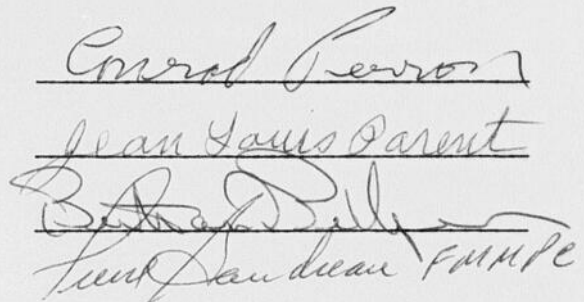 Conrad Perron
Jean Louis Parent
Bertrand
Pierre Gaudreau FMMPC